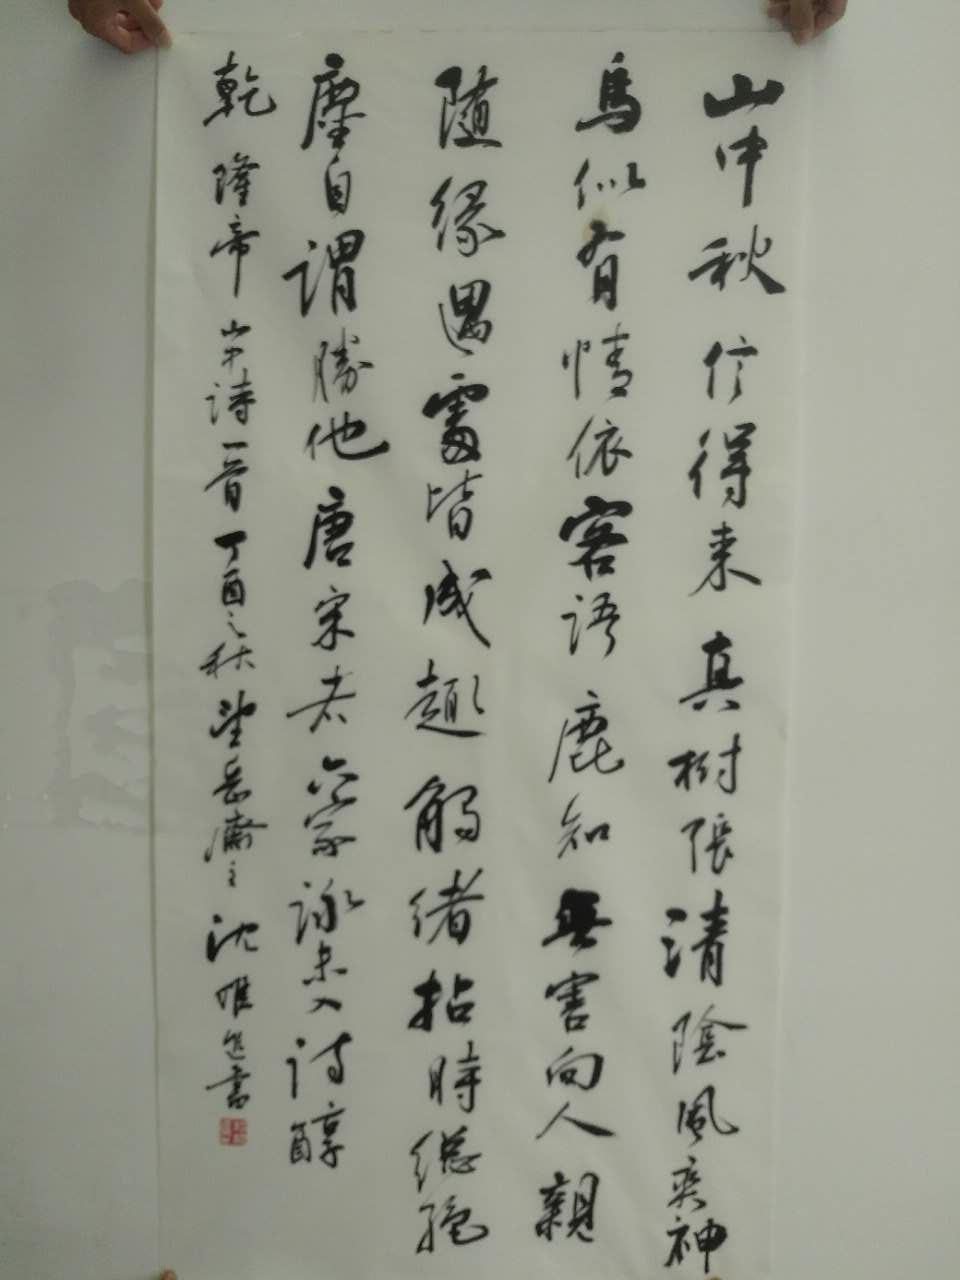 山中秋信得来真樹張清陰風爽神
鳥似有情依客語鹿知無害向人親
随缘遇處皆成趣觸緒拈時總絶
塵自謂勝他唐宋者六家詠未入詩醇
乾隆帝山中诗一首丁酉之秋望岳齋主沈惟進書